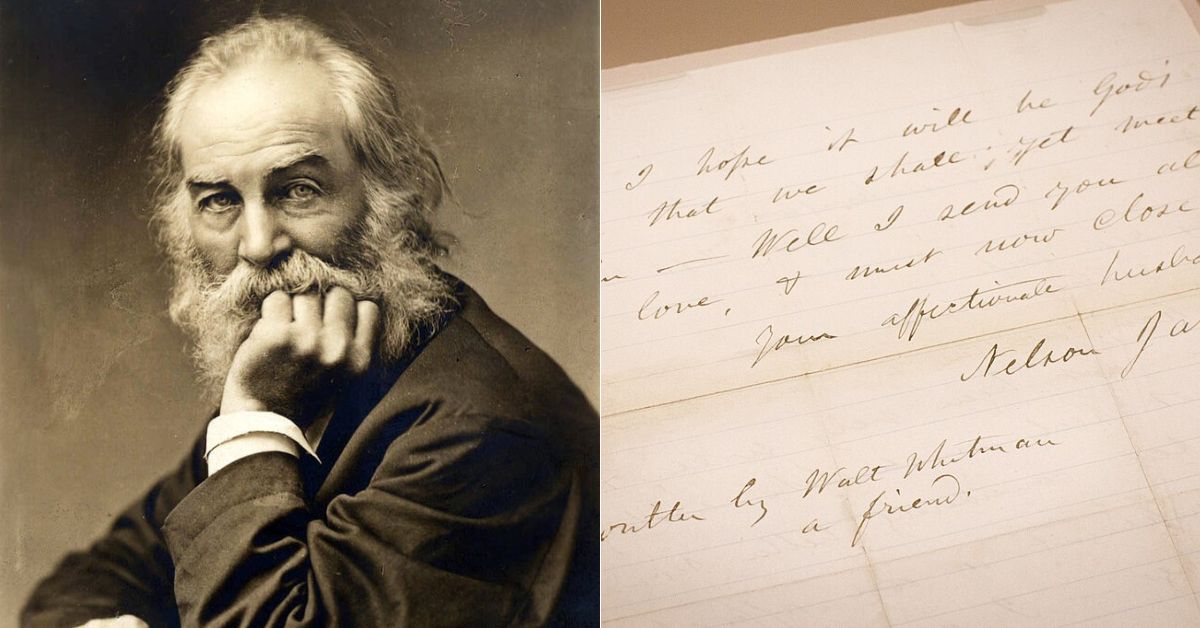 I hope it will be God's
that we shall yet meet
— Well I send you al
love, & must now close
Your affectionate husba
Nelson Ja
written by Walt Whitman
a friend.